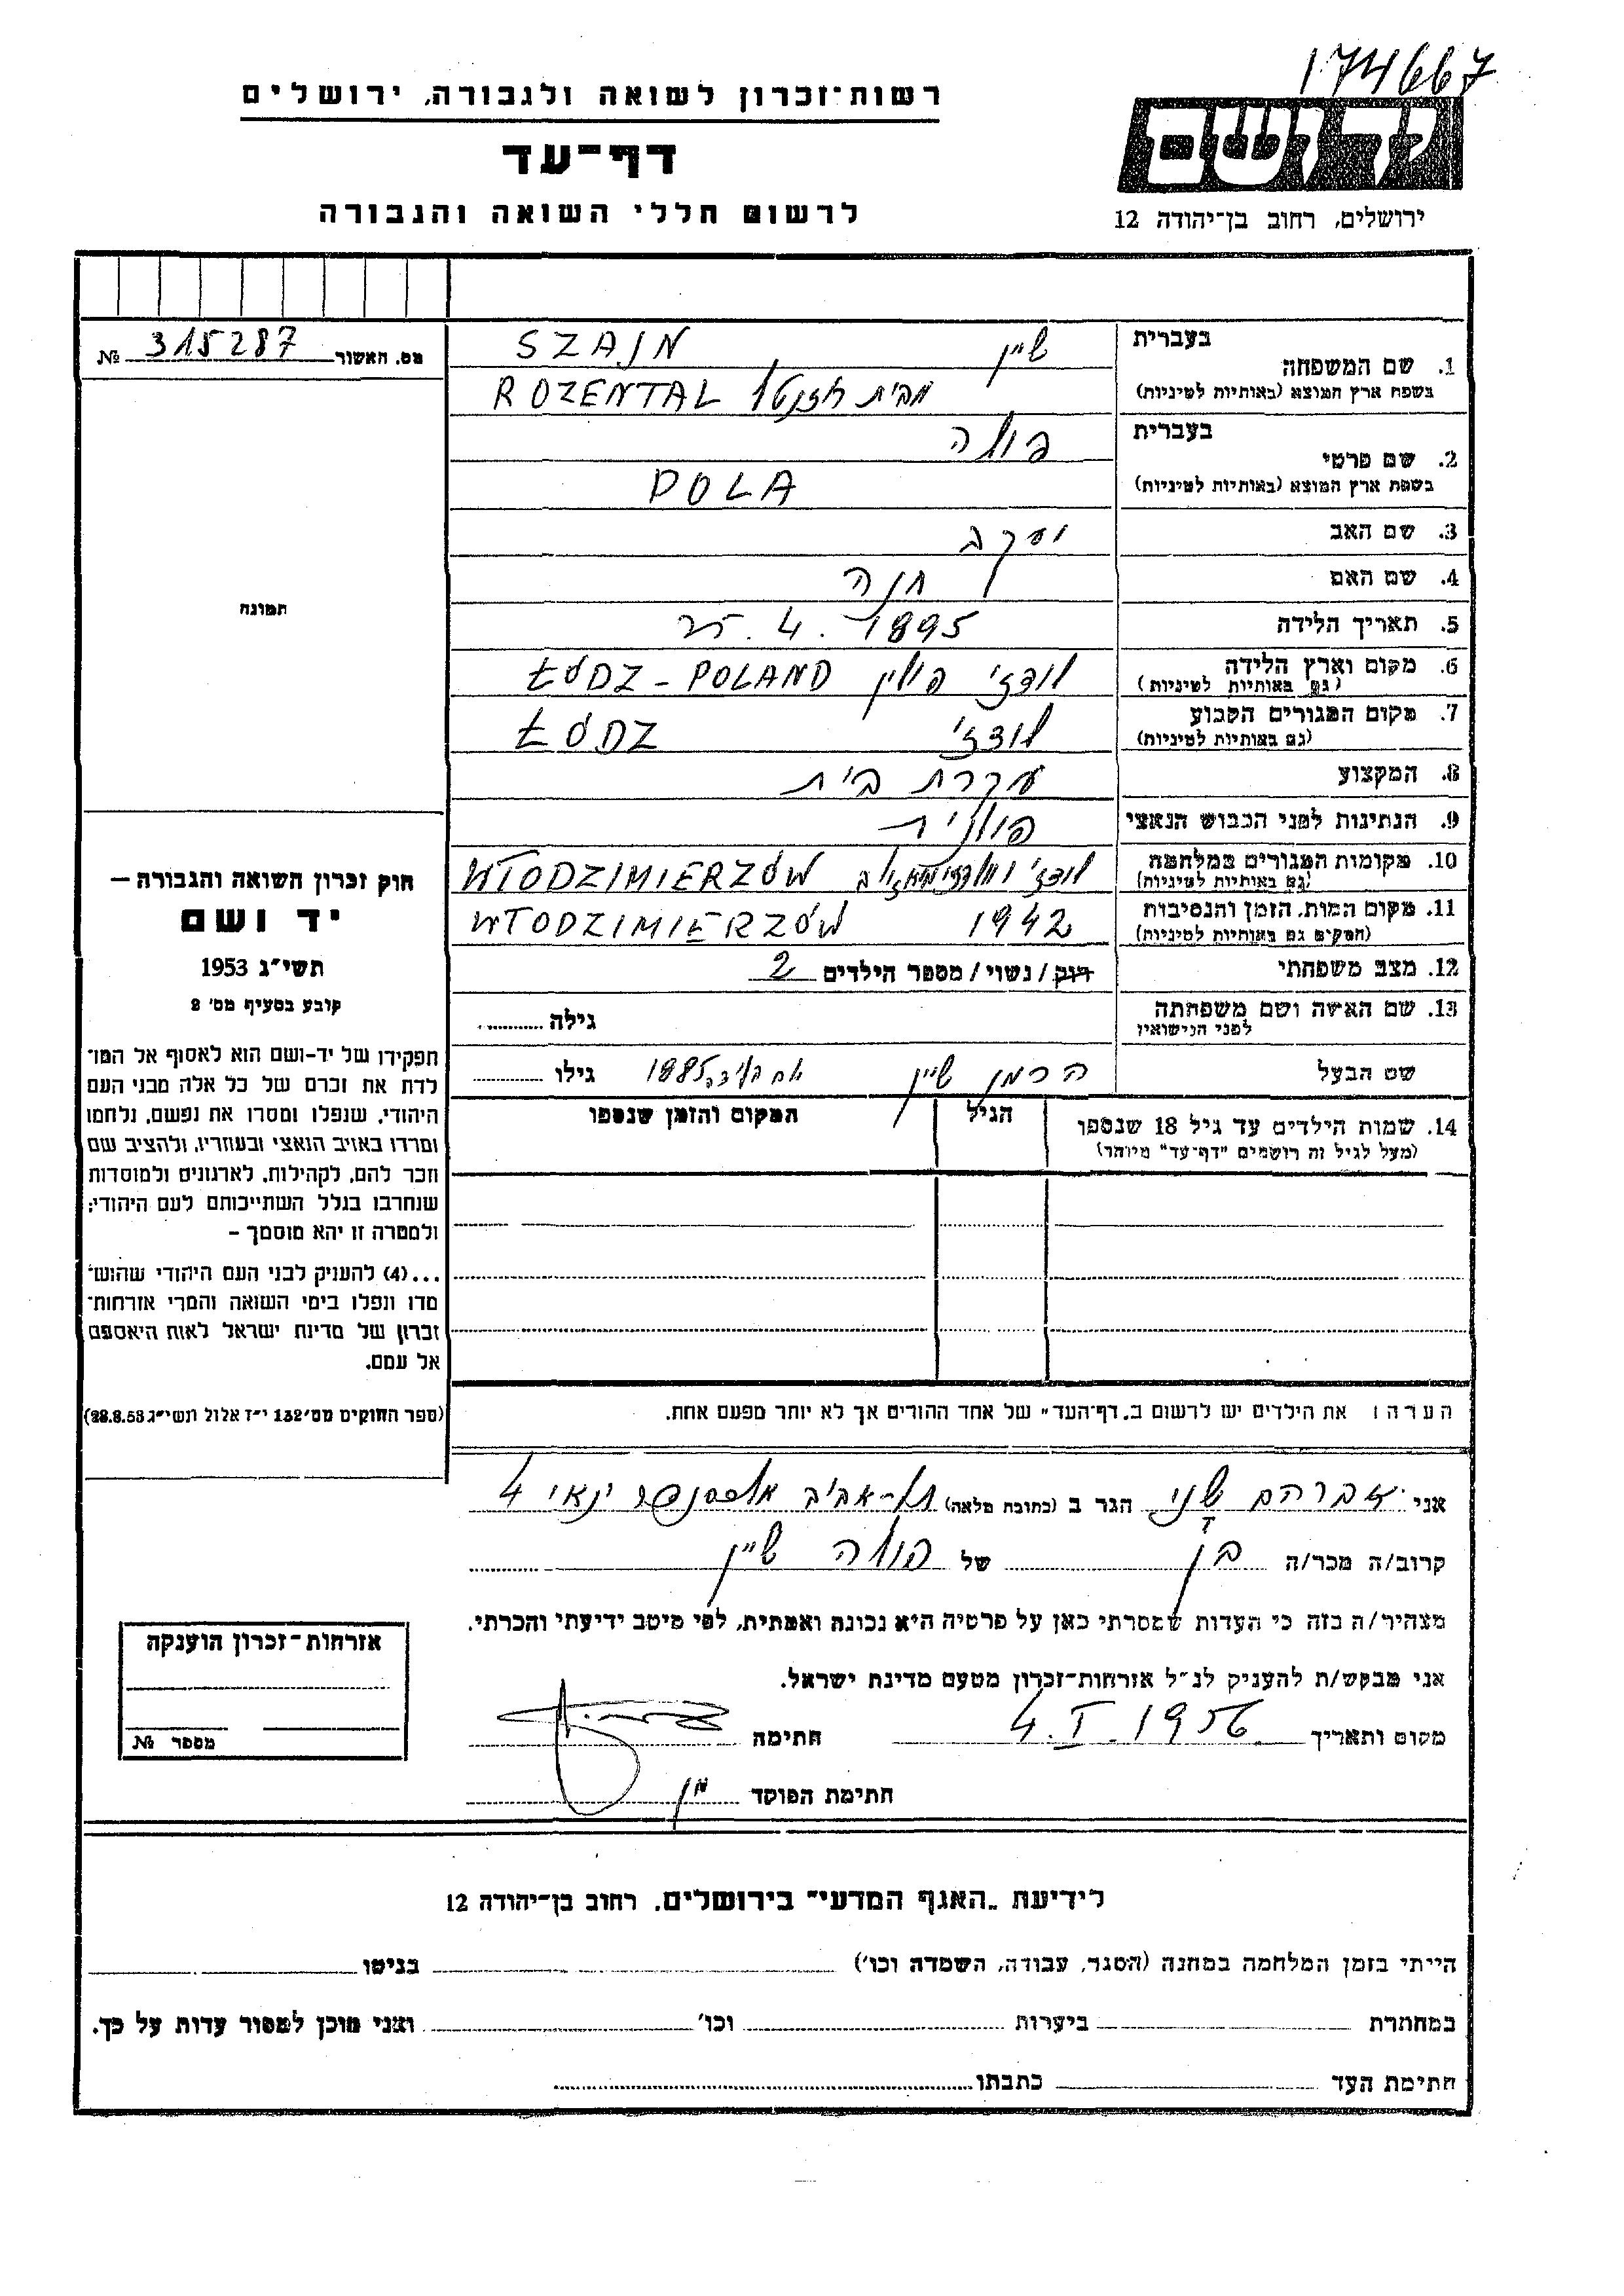 174667
רשות־זכרון לשואה ולגבורה, ירושלים
דף־עד
לרשום חללי השואה והגבורה
יד ושם
ירושלים, רחוב בן־יהודה 12
מס. האשור 315287 №
תמונה
1. שם המשפחה בעברית שיין SZAJN
בשפת ארץ המוצא (באותיות לטיניות) מבית רוזנטל ROZENTAL
2. שם פרטי בעברית פולה
בשפת ארץ המוצא (באותיות לטיניות) POLA
3. שם האב יעקב
4. שם האם חנה
5. תאריך הלידה 25.4.1895
6. מקום וארץ הלידה לודז' פולין ŁÓDZ - POLAND
(גם באותיות לטיניות)
7. מקום המגורים הקבוע לודז' ŁÓDZ
(גם באותיות לטיניות)
8. המקצוע עקרת בית
9. הנתינות לפני הכבוש הנאצי פולנית
10. מקומות המגורים במלחמה לודז' WŁODZIMIERZÓW
(גם באותיות לטיניות)
11. מקום המות, הזמן והנסיבות 1942 WŁODZIMIERZÓW
(המקום גם באותיות לטיניות)
12. מצב משפחתי רוק / נשוי / מספר הילדים 2
13. שם האשה ושם משפחתה
לפני הנישואין גילה
שם הבעל הרמן שיין 1885 גילו
14. שמות הילדים עד גיל 18 שנספו הגיל המקום והזמן שנספו
(מעל לגיל זה רושמים "דף־עד" מיוחד)
הערה: את הילדים יש לרשום ב„דף־העד" של אחד ההורים אך לא יותר מפעם אחת.
חוק זכרון השואה והגבורה —
יד ושם
תשי"ג 1953
קובע בסעיף מס' 2
תפקידו של יד-ושם הוא לאסוף אל המו־
לדת את זכרם של כל אלה מבני העם
היהודי, שנפלו ומסרו את נפשם, נלחמו
ומרדו באויב הנאצי ובעוזריו, ולהציב שם
וזכר להם, לקהילות, לארגונים ולמוסדות
שנחרבו בגלל השתייכותם לעם היהודי;
ולמטרה זו יהא מוסמך –
...(4) להעניק לבני העם היהודי שהוש־
מדו ונפלו בימי השואה והמרי אזרחות־
זכרון של מדינת ישראל לאות היאספם
אל עמם.
(ספר החוקים מס' 132 י"ז אלול תשי"ג 28.8.53)
אני אברהם שני הגר ב (כתובת מלאה) תל-אביב אלכסנדר ינאי 4
קרוב/ה מכר/ה בן של פולה שיין
מצהיר/ה בזה כי העדות שמסרתי כאן על פרטיה היא נכונה ואמתית, לפי מיטב ידיעתי והכרתי.
אני מבקש/ת להעניק לנ"ל אזרחות־זכרון מטעם מדינת ישראל.
מקום ותאריך 4.I.1956 חתימה
חתימת הפוקד
אזרחות־זכרון הוענקה
מספר №
לידיעת „האגף המדעי" בירושלים, רחוב בן־יהודה 12
הייתי בזמן המלחמה במחנה (הסגר, עבודה, השמדה וכו') בגיטו
במחתרת ביערות וכו' ואני מוכן למסור עדות על כך.
חתימת העד כתבתו